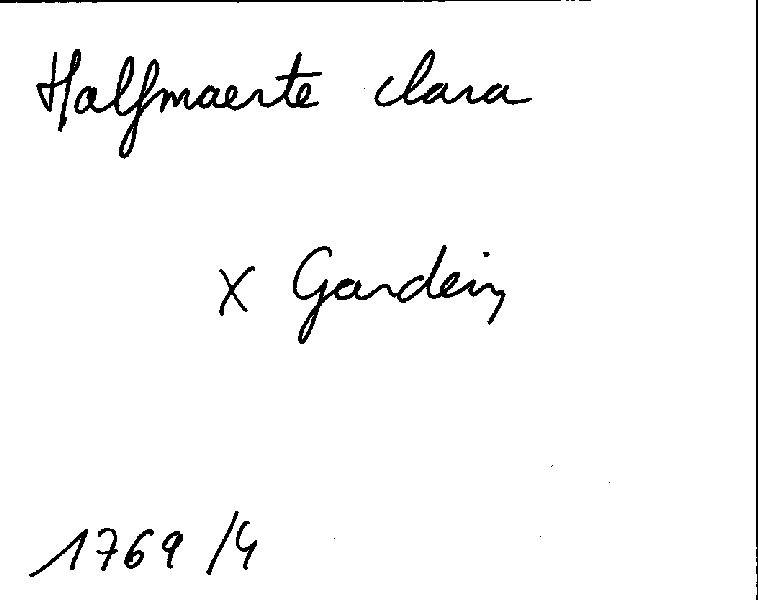 Halfmaerte clara
x Gardein
1769/4